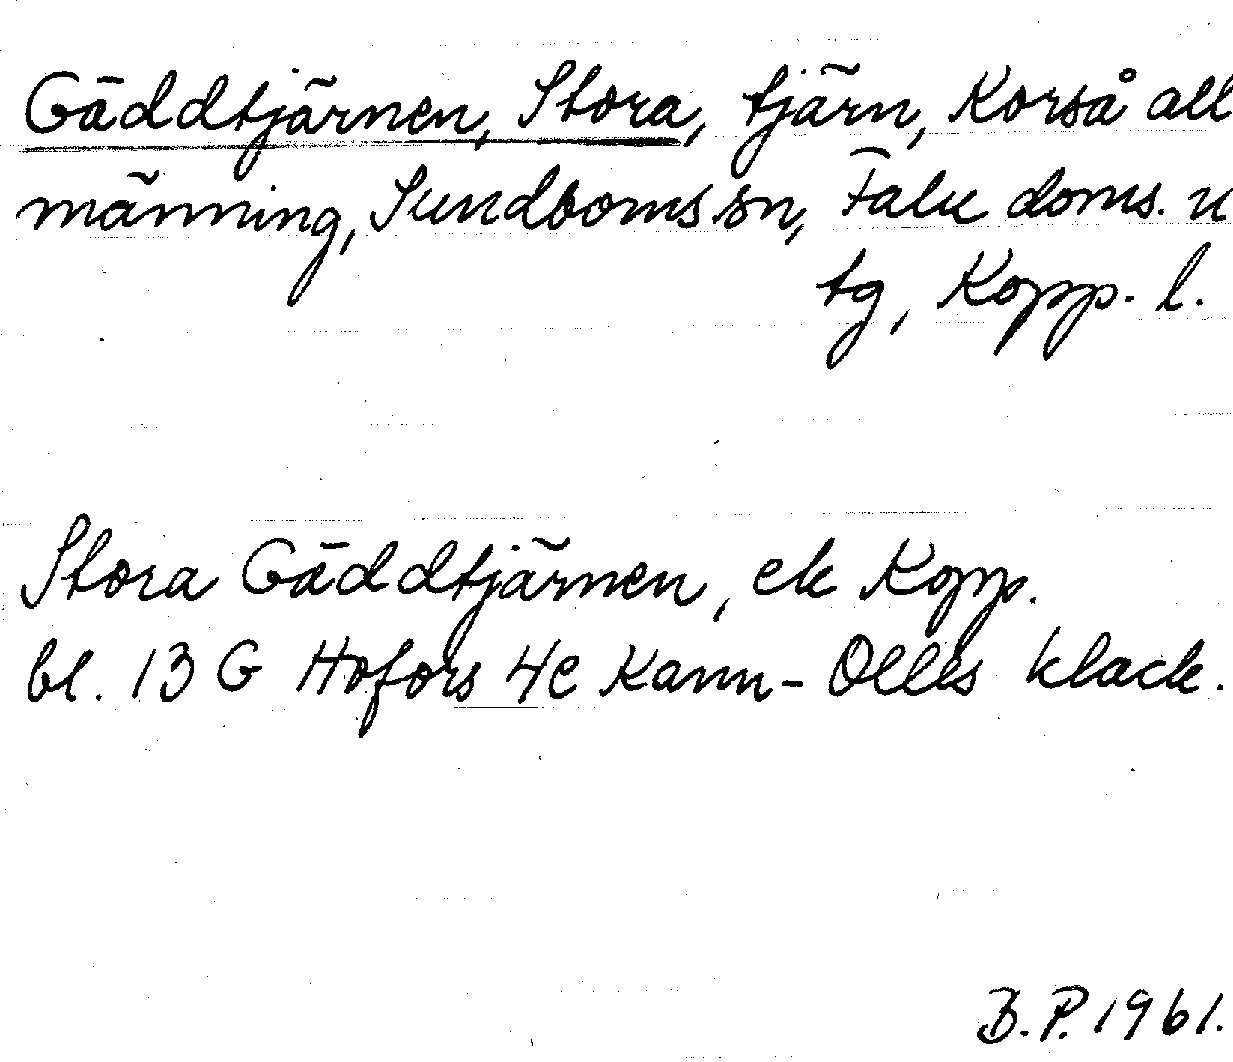 Gäddtjärnen, Stora, tjärn, Korså all
männing, Sundborns sn, Falu doms. u
tg, Kopp. l.
Stora Gäddtjärnen, ek Kopp.
bl. 13 G Hofors 4c Kann-Olles klack.
B.P. 1961.